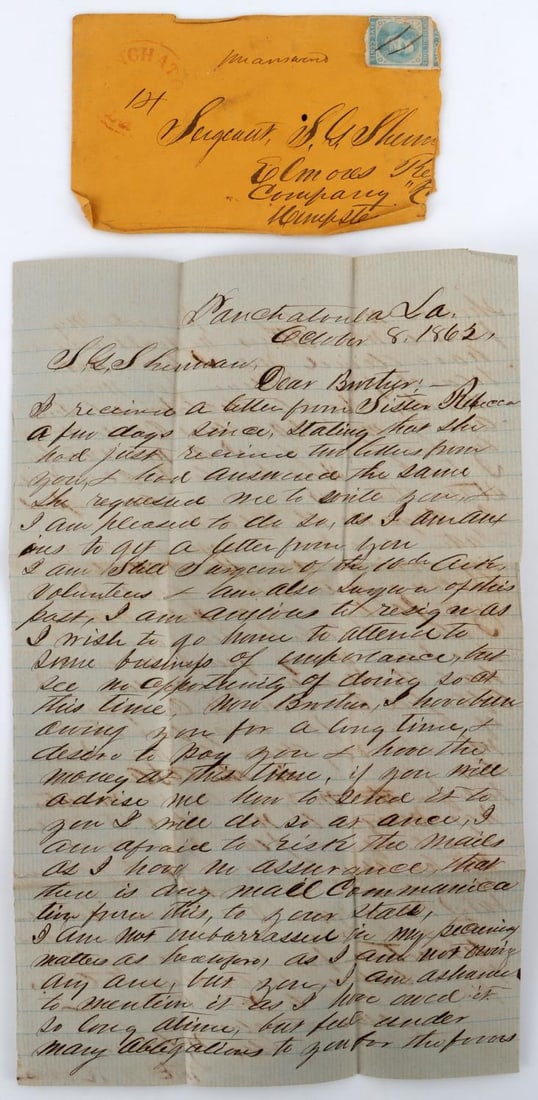 NCHAT
unanswered
14
Sergeant, S. G. Sherm
Elmores Re
Company "C
Hempste
Panchatoula La,
October 8, 1862,
S, G, Sherman,
Dear Brother; —
I receive a letter from Sister Rebecca
a few days since, stating that she
had just receive two letters from
you, & had answered the same
she requested me to write you, &
I am pleased to do so, as I am anx
ious to get a letter from you
I am Still Surgeon of the 10th Ark,
Volunteers & am also Surgeon of this
post, I am anxious to resign as
I wish to go home to attend to
some business of importance, but
see no opportunity of doing so at
this time, Now Brother, I have been
owing you for a long time, &
desire to pay you & have the
money at this time, if you will
advise me how to send it to
you I will do so at once, I
am afraid to risk the mails
as I have no assurance, that
there is any mail Communica
tion from this, to your State,
I am not embarrassed in my pecuniary
matters as heretofore, as I am not owing
any one, but you, I am ashamed
to mention it as I have owed it
so long a time, but feel under
many obligations to you for the favors